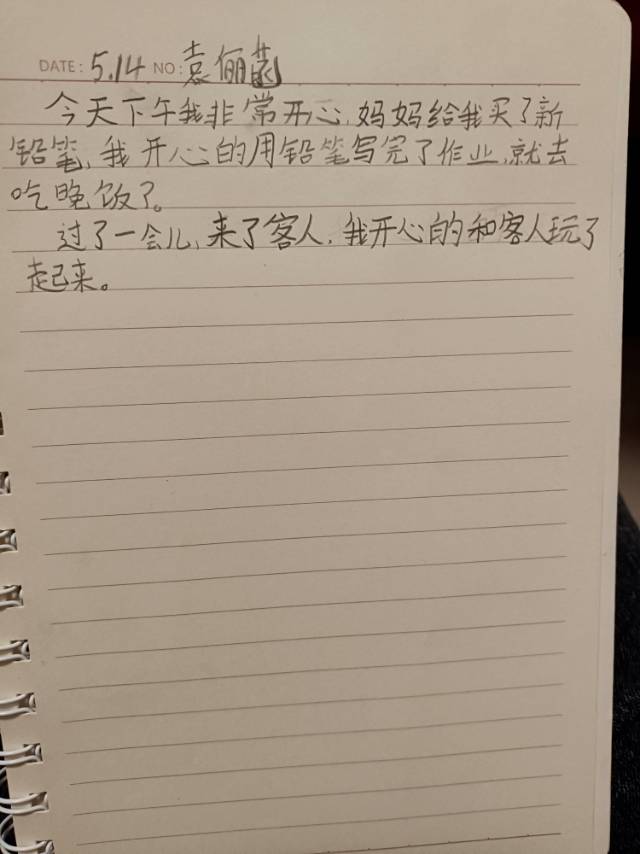 DATE: 5.14 NO: 袁俪
今天下午我非常开心,妈妈给我买了新
铅笔,我开心的用铅笔写完了作业,就去
吃晚饭了。
过了一会儿,来了客人,我开心的和客人玩了
起来。